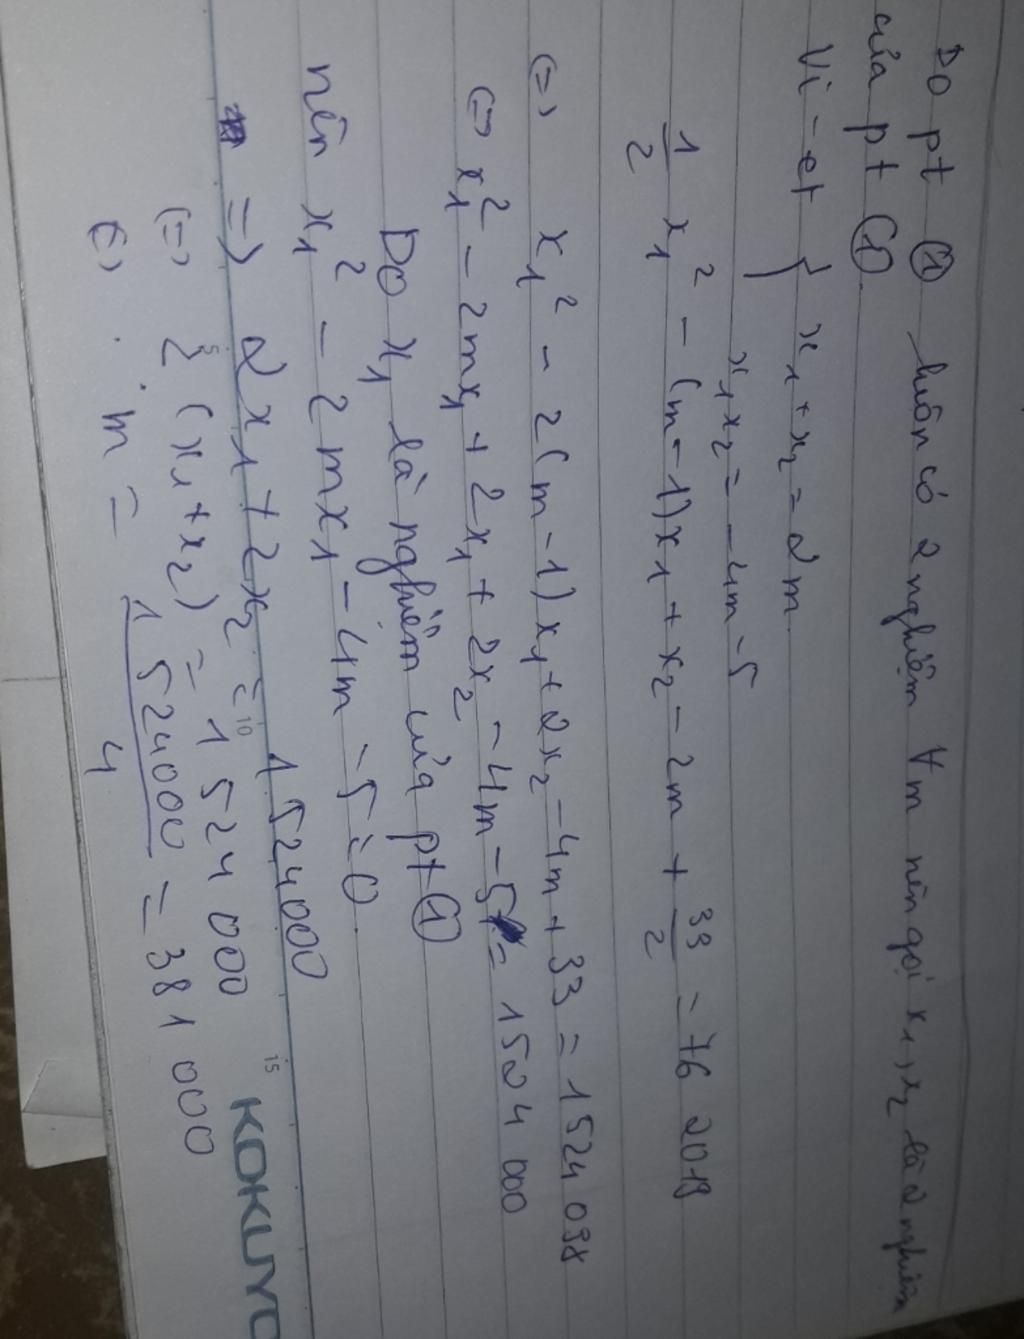 Do pt ① luôn có 2 nghiệm ∀m nên gọi x₁, x₂ là 2 nghiệm
của pt ①.
Vi-et { x₁ + x₂ = 2m
x₁x₂ = -4m-5
1/2 x₁² - (m-1)x₁ + x₂ - 2m + 33/2 = 762019
(=) x₁² - 2(m-1)x₁ + 2x₂ - 4m + 33 = 1524038
(=) x₁² - 2mx₁ + 2x₁ + 2x₂ - 4m - 5 = 1524 000
Do x₁ là nghiệm của pt ①
nên x₁² - 2mx₁ - 4m - 5 = 0
=) 2x₁ + 2x₂ = 1 524000
(=) 2(x₁+x₂) = 1 524 000
(=) m = 1 524000/4 = 381 000
5 10 15
KOKUYO